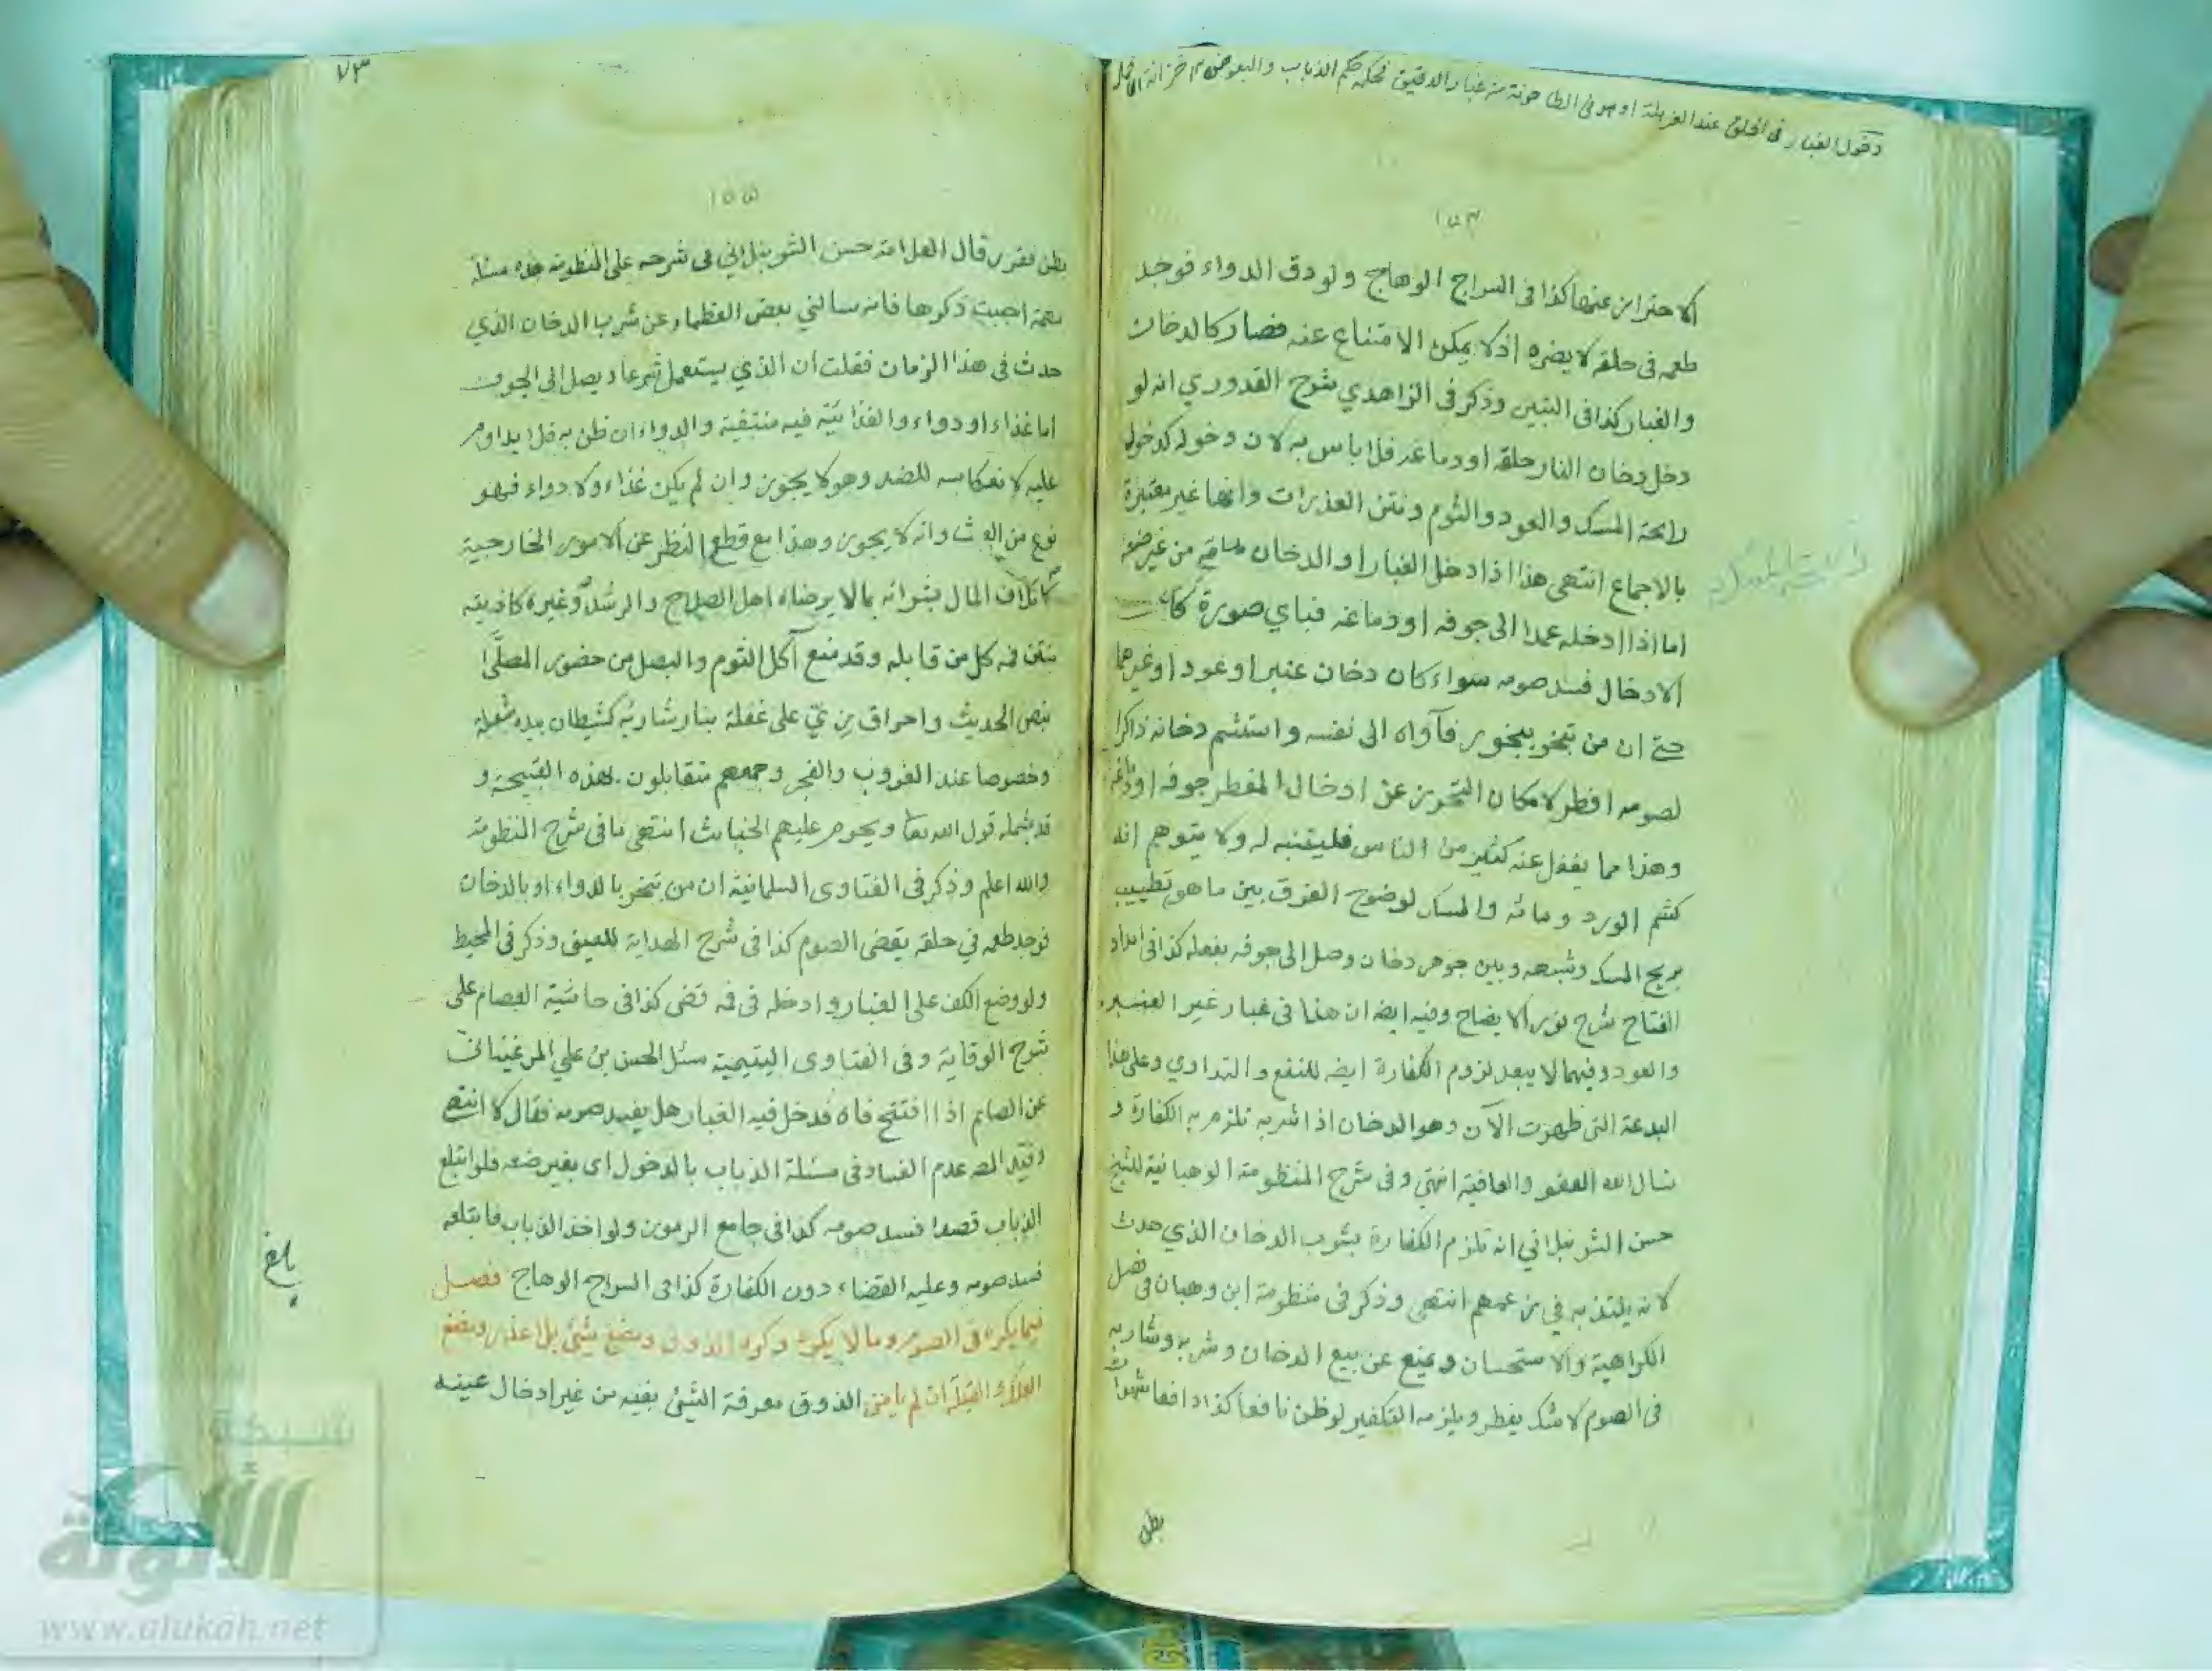 دخول الغبار في الحلق عند الغربلة او هو في الطاحونة من غبار الدقيق فحكمه حكم الذباب والبعوض خزانة الاكمل
١٥٤
الاحتراز عنها كذا فى السراج الوهاج ولو دق الدواء فوجد
طعمه فى حلقه لا يضره اذ لا يمكن الامتناع عنه فصار كالدخان
والغبار كذا فى التبين وذكر فى الزاهدي شرح القدوري انه لو
دخل دخان النار حلقه او دماغه فلا باس به لان دخوله كدخول
رايحة المسك والعود والثوم ونتن العذرات وانها غير معتبرة
بالاجماع انتهى هذا اذا دخل الغبار او الدخان حلقه من غير صنعه
اما اذا ادخله عمدا الى جوفه او دماغه فباي صورة كان
الادخال فسد صومه سواء كان دخان عنبر او عود او غيرهما
حتى ان من تبخر ببخور فآواه الى نفسه واستشم دخانه ذاكرا
لصومه افطر لامكان التحرز عن ادخال المفطر جوفه او دماغه
وهذا مما يغفل عنه كثير من الناس فليتنبه له ولا يتوهم انه
كشم الورد ومائه والمسك لوضوح الفرق بين ما هو تطييب
بريح المسك وشبهه وبين جوهر دخان وصل الى جوفه بفعله كذا فى امداد
الفتاح شرح نور الايضاح وفيه ايضا ان هذا فى غبار غير العنبر
والعود وفيهما لا يبعد لزوم الكفارة ايضا للنفع والتداوي وعلى هذا
البدعة التى ظهرت الآن وهو الدخان اذا شربه تلزمه الكفارة و
نسال الله العفو والعافية انتهى وفى شرح المنظومة الوهبانية للشيخ
حسن الشرنبلاني انه تلزم الكفارة بشرب الدخان الذي حدث
لانه يلتذ به في زعمهم انتهى وذكر فى منظومة ابن وهبان فى فصل
الكراهية والاستحسان ويمنع عن بيع الدخان وشربه وشاربه
فى الصوم لا شك يفطر ويلزمه التكفير لو ظن نافعا كذا دافعا شهوات
بطن
٧٣
١٥٥
بطن فقرر قال العلامة حسن الشرنبلاني فى شرحه على المنظومة هذه مسئلة
مهمة احببت ذكرها فانه سالني بعض العظماء عن شرب الدخان الذي
حدث فى هذا الزمان فقلت ان الذي يستعمل تجرعا ويصل الى الجوف
اما غذاء او دواء والغذائية فيه منتفية والدواء ان ظن به فلا يداوم
عليه لانعكاسه للضد وهو لا يجوز وان لم يكن غذاء ولا دواء فهو
نوع من العبث وانه لا يجوز وهذا مع قطع النظر عن الامور الخارجية
كاتلاف المال بشرائه بما لا يرضاه اهل الصلاح والرشد وغيره كاذيته
بنتن فمه كل من قابله وقد منع آكل الثوم والبصل من حضور المصلى
بنص الحديث واحراق زي على غفلة بنار شاربه كشيطان بيده شعلة
وخصوصا عند الغروب والفجر وجمعهم متقابلون بهذه القبيحة و
قد يشمله قول الله تعا ويحرم عليهم الخبائث انتهى ما فى شرح المنظومة
والله اعلم وذكر فى الفتاوى السلمانية ان من تبخر بالدواء او بالدخان
فوجد طعمه في حلقه يقضى الصوم كذا فى شرح الهداية للعينى وذكر فى المحيط
ولو وضع الكف على الغبار وادخله فى فمه قضى كذا فى حاشية العصام على
شرح الوقاية وفى الفتاوى اليتيمية سئل الحسن بن علي المرغينانى
عن الصائم اذا افتتح فاه فدخل فيه الغبار هل يفسد صومه فقال لا انتهى
وقيد المصـ عدم الفساد فى مسئلة الذباب بالدخول اى بغير صنعه فلو ابتلع
الذباب قصدا فسد صومه كذا فى جامع الرموز ولو اخذ الذباب فابتلعه
فسد صومه وعليه القضاء دون الكفارة كذا فى السراج الوهاج فصل
فيما يكره فى الصوم وما لا يكره وكره الذوق ومضغ شئ بلا عذر ومضغ
العلك والقبلة ان لم يأمن الذوق معرفة الشئ بفيه من غير ادخال عينه
بلغ
شبكة
الألوكة
www.alukah.net